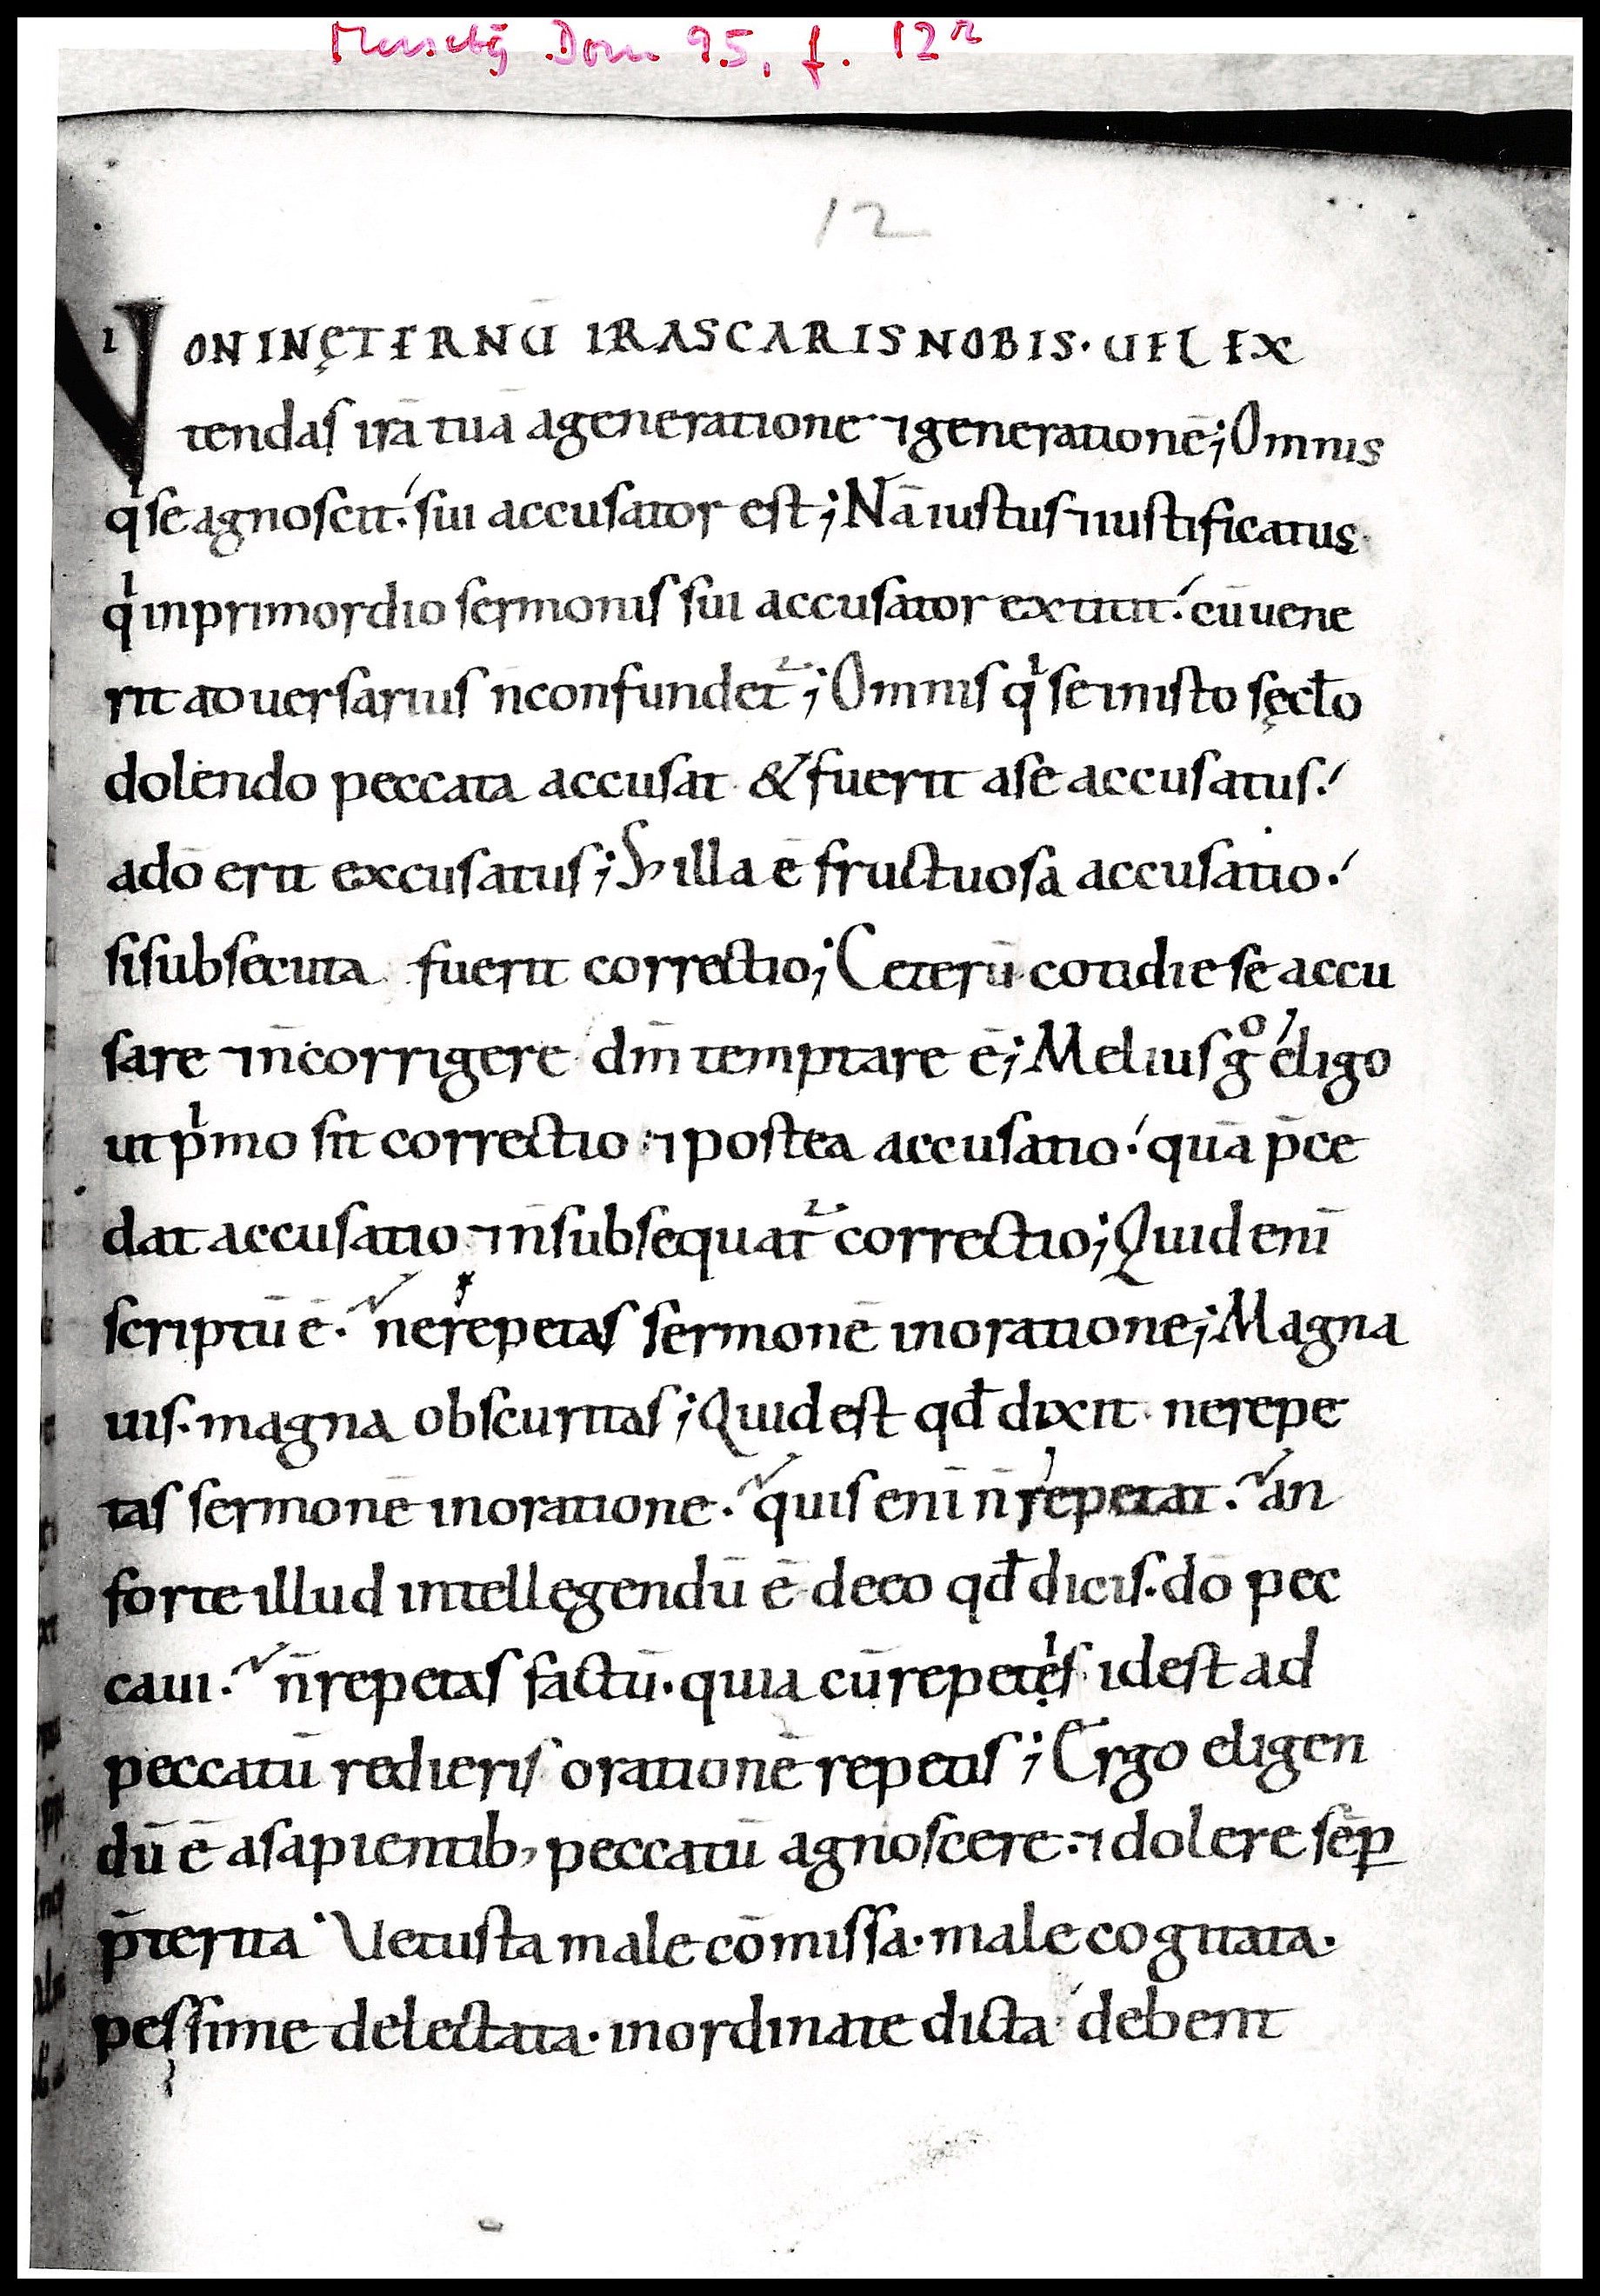 Merseb. Dom 95, f. 12r
12
NON INĘTERNŪ IRASCARIS NOBIS· UEL EX
tendas irā tuā a generatione ⁊ generationē; Omnis
qͥ se agnoscit· sui accusator est; Nā iustus ⁊ iustificatus
qͥ in primordio sermonis sui accusator extitit· cū uene
rit aduersarius n̄ confundet᷑; Omnis qͥ se in isto sęcło
dolendo peccata accusat & fuerit a se accusatus·
a dō erit excusatus; Sꝫ illa ē fructuosa accusatio·
si subsecuta fuerit correctio; Ceterū cotidie se accu
sare ⁊ n̄ corrigere dn̄m temptare ē; Melius gͦ eligo
ut pͥmo sit correctio ⁊ postea accusatio· quā p̄ce
dat accusatio ⁊ n̄ subsequat᷑ correctio; Quid eni̅
scriptū ē· ne repetas sermonē in oratione; Magna
uis· magna obscuritas; Quid est qđ dixit· ne repe
tas sermonē in oratione· quis eni̅ n̄ repetat· an
forte illud intellegendū ē de eo qđ dicis· dō pec
caui· n̄ repetas factū· quia cū repetẹͥs id est ad
peccatū redieris orationē repetis; Ergo eligen
dū ē a sapientib; peccatū agnoscere· ⁊ dolere sēp̄
p̄terita· Uetusta male cōmissa· male cogitata·
pessime delectata· inordinate dicta debent